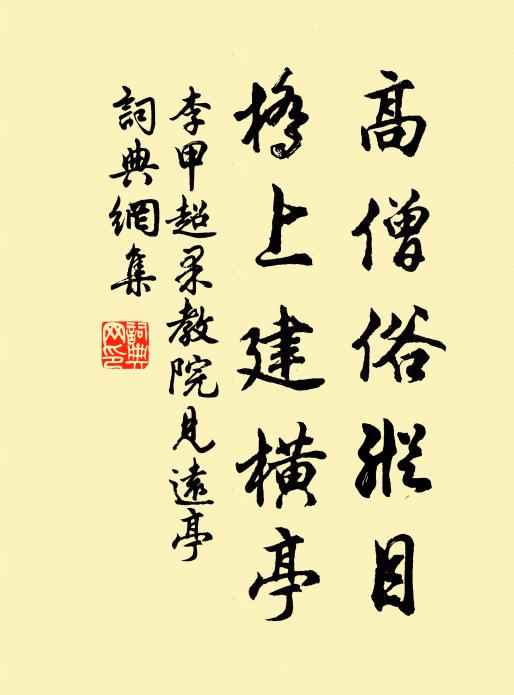 高僧俗縱目
橋上建橫亭
李甲超果教院見遠亭
詞典網集
詞典網印